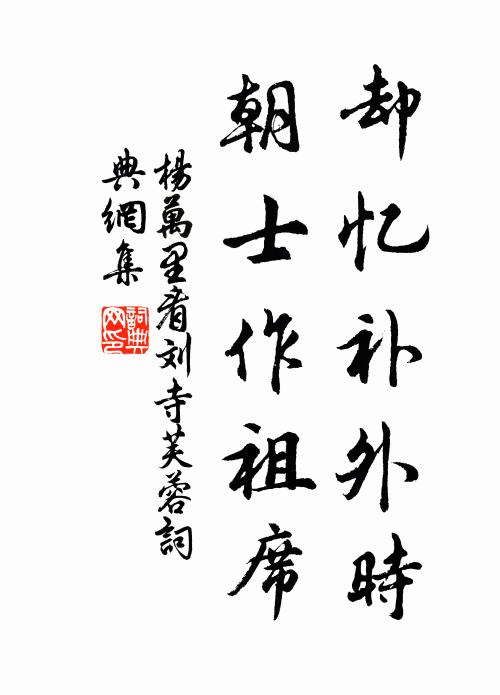 却忆补外時
朝士作祖席
楊萬里看刘寺芙蓉詞
典網集
詞典网印